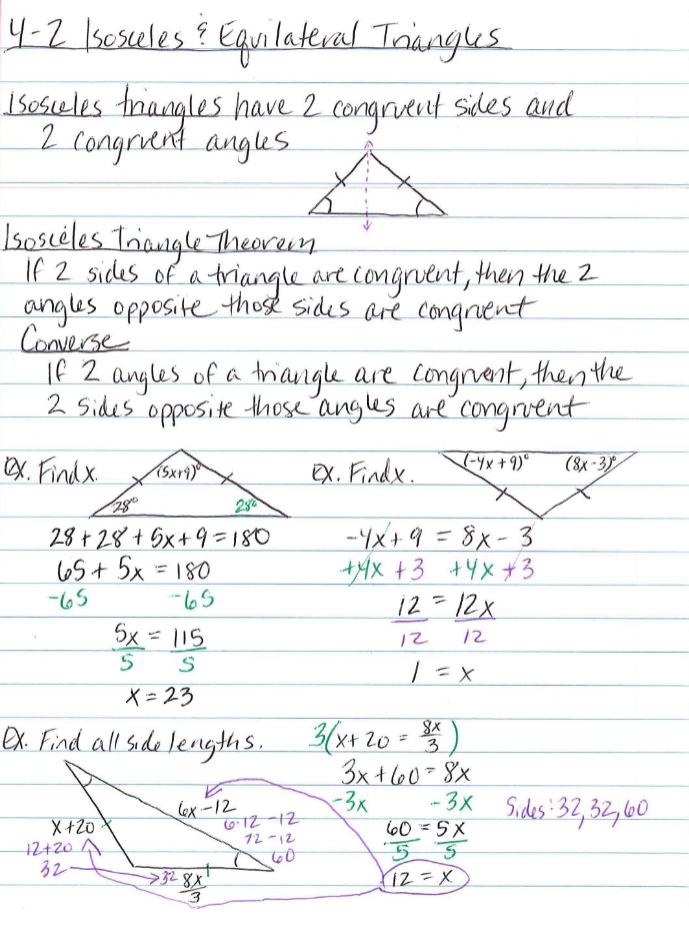 4-2 Isosceles & Equilateral Triangles
Isosceles triangles have 2 congruent sides and
2 congruent angles
Isosceles Triangle Theorem
If 2 sides of a triangle are congruent, then the 2
angles opposite those sides are congruent
Converse
If 2 angles of a triangle are congruent, then the
2 sides opposite those angles are congruent
Ex. Find x.
(5x+9)°
28°
28°
28 + 28 + 5x + 9 = 180
65 + 5x = 180
-65 -65
5x = 115
5 5
x = 23
Ex. Find x.
(-4x+9)° (8x-3)°
-4x + 9 = 8x - 3
+4x +3 +4x +3
12 = 12x
12 12
1 = x
Ex. Find all side lengths.
x+20
12+20
32
6x-12
6·12-12
72-12
60
32 8x/3
3(x+20 = 8x/3)
3x+60 = 8x
-3x -3x
60 = 5x
5 5
12 = x
Sides: 32, 32, 60